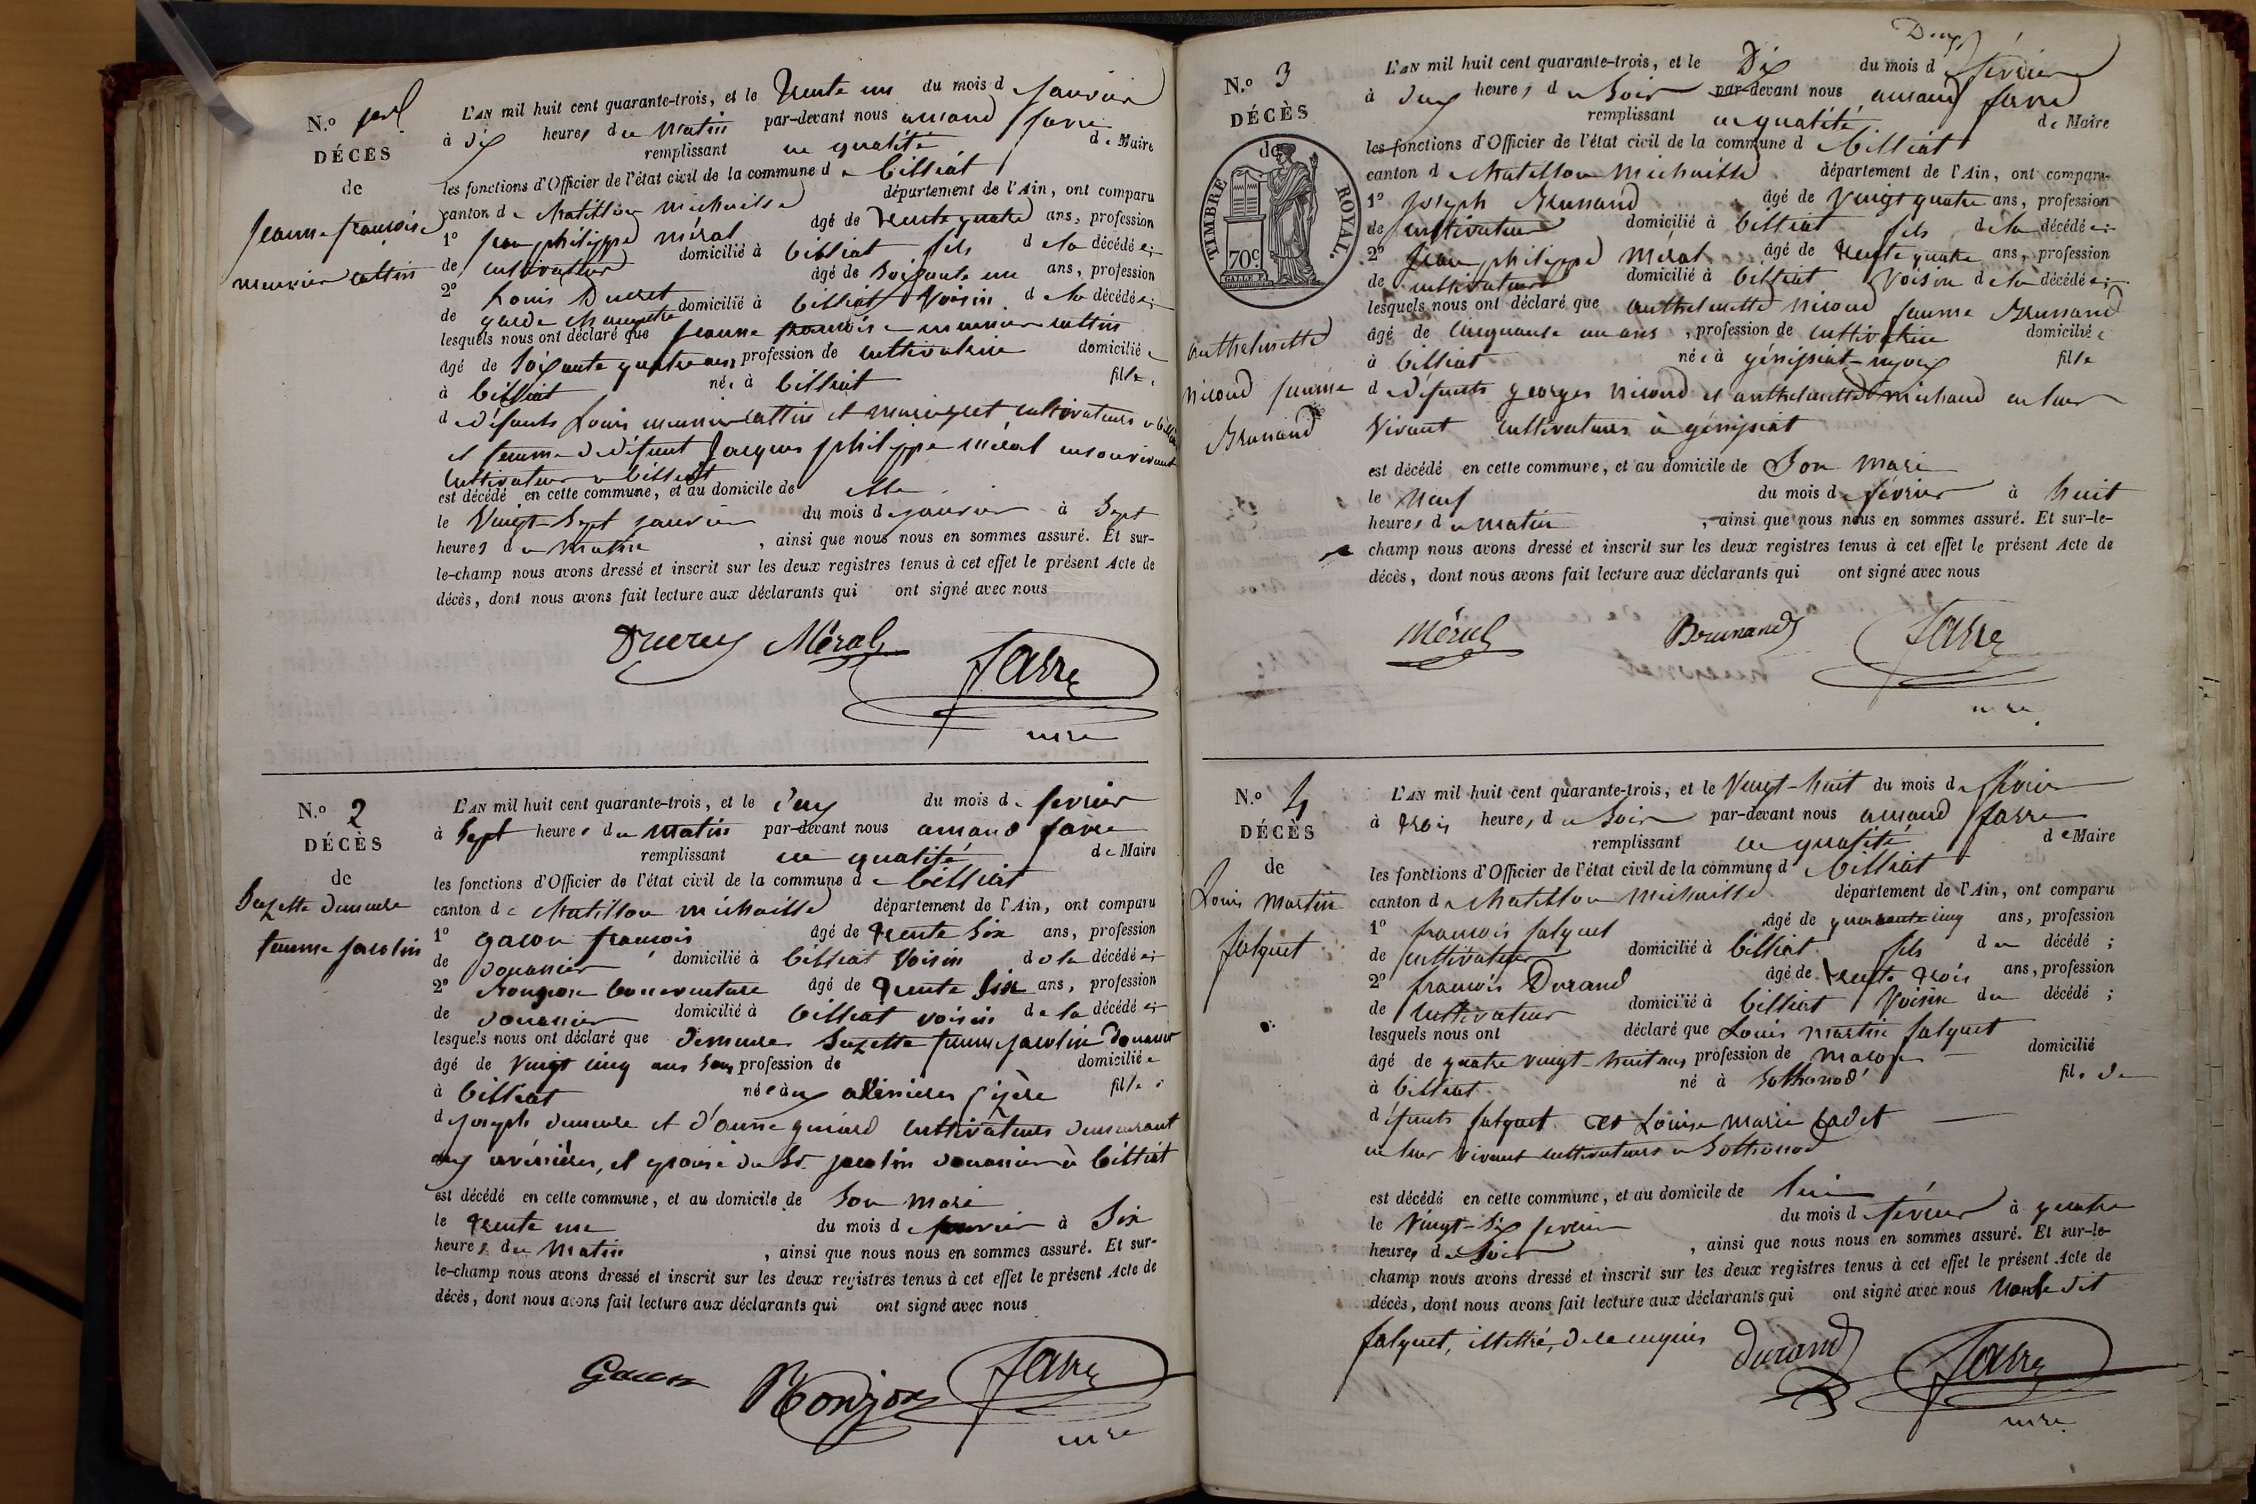 N.º 1er
DÉCÈS
de
Jeanne françoise
meunier cattin
L'AN mil huit cent quarante-trois, et le trente un du mois de Janvier
à dix heures du matin par-devant nous amand favre
remplissant en qualité de Maire
les fonctions d'Officier de l'état civil de la commune de billiat
canton de chatillon michaille département de l'Ain, ont comparu
1º Jean philippe méral âgé de trente quatre ans, profession
de cultivateur domicilié à billiat fils de la décédée;
2º Louis Ducret âgé de Soixante un ans, profession
de garde champetre domicilié à billiat Voisin de la décédée;
lesquels nous ont déclaré que Jeanne françoise meunier cattin
âgé de Soixante quatre ans profession de cultivatrice domiciliée
à billiat née à billiat fille
d défunts Louis meunier cattin et marie cultivateurs à billiat
et femme de défunt Jacques philippe méral en son vivant
Cultivateur à billiat
est décédé en cette commune, et au domicile de elle
le Vingt-Sept janvier du mois de janvier à Sept
heures du matin, ainsi que nous nous en sommes assuré. Et sur-
le-champ nous avons dressé et inscrit sur les deux registres tenus à cet effet le présent Acte de
décès, dont nous avons fait lecture aux déclarants qui ont signé avec nous
Ducret Méral
favre
mre
N.º 2
DÉCÈS
de
Suzette demeure
femme jacolin
L'AN mil huit cent quarante-trois, et le deux du mois de fevrier
à Sept heures du matin par-devant nous amand favre
remplissant en qualité de Maire
les fonctions d'Officier de l'état civil de la commune de billiat
canton de chatillon michaille département de l'Ain, ont comparu
1º gacon françois âgé de trente Six ans, profession
de douanier domicilié à billiat Voisin de la décédée;
2º bonaventure âgé de trente Six ans, profession
de douanier domicilié à billiat voisin de la décédée;
lesquels nous ont déclaré que demeure Suzette femme jacolin douanier
âgé de Vingt cinq ans Sans profession de domiciliée
à billiat née aux avenieres isère fille
de joseph demeure et d'anne cultivateurs demeurant
aux avenières, et epouse du Sr jacolin douanier à billiat
est décédé en cette commune, et au domicile de Son mari
le trente un du mois de janvier à Six
heures du matin, ainsi que nous nous en sommes assuré. Et sur-
le-champ nous avons dressé et inscrit sur les deux registres tenus à cet effet le présent Acte de
décès, dont nous avons fait lecture aux déclarants qui ont signé avec nous
Gacon Ronjon favre
mre
Deux
N.º 3
DÉCÈS
de
TIMBRE ROYAL.
70c.
anthelmette
nicoud femme
Brunand
L'AN mil huit cent quarante-trois, et le Dix du mois de février
à deux heures du Soir par-devant nous amand favre
remplissant en qualité de Maire
les fonctions d'Officier de l'état civil de la commune d billiat
canton de chatillon michaille département de l'Ain, ont comparu
1º Joseph Brunand âgé de Vingt quatre ans, profession
de cultivateur domicilié à billiat fils de la décédée;
2º Jean philippe méral âgé de trente quatre ans, profession
de cultivateur domicilié à billiat Voisin de la décédée;
lesquels nous ont déclaré que anthelmette nicoud femme Brunand
âgé de cinquante un ans, profession de cultivatrice domiciliée
à billiat née à génissiat fille
d défunts georges nicoud et anthelmette michaud en leur
Vivant cultivateurs à génissiat
est décédé en cette commune, et au domicile de Son mari
le Neuf du mois de février à huit
heures du matin, ainsi que nous nous en sommes assuré. Et sur-le-
champ nous avons dressé et inscrit sur les deux registres tenus à cet effet le présent Acte de
décès, dont nous avons fait lecture aux déclarants qui ont signé avec nous
Méral Brunand favre
mre
N.º 4
DÉCÈS
de
Louis Martin
falquet
L'AN mil huit cent quarante-trois, et le Vingt-huit du mois de février
à trois heures du Soir par-devant nous amand favre
remplissant en qualité de Maire
les fonctions d'Officier de l'état civil de la commune d billiat
canton de chatillon michaille département de l'Ain, ont comparu
1º françois falquet âgé de quarante cinq ans, profession
de cultivateur domicilié à billiat fils du décédé;
2º françois Durand âgé de trente trois ans, profession
de cultivateur domicilié à billiat Voisin du décédé;
lesquels nous ont déclaré que Louis martin falquet
âgé de quatre vingt-huit ans profession de maçon domicilié
à billiat né à Sothonod fils de
défunts falquet et Louise marie cadet
en leur vivant cultivateurs à Sothonod
est décédé en cette commune, et au domicile de lui
le Vingt-Six fevrier du mois de février à quatre
heures du Soir, ainsi que nous nous en sommes assuré. Et sur-le-
champ nous avons dressé et inscrit sur les deux registres tenus à cet effet le présent Acte de
décès, dont nous avons fait lecture aux déclarants qui ont signé avec nous non le dit
falquet, illettré, de ce enquis Durand favre
mre